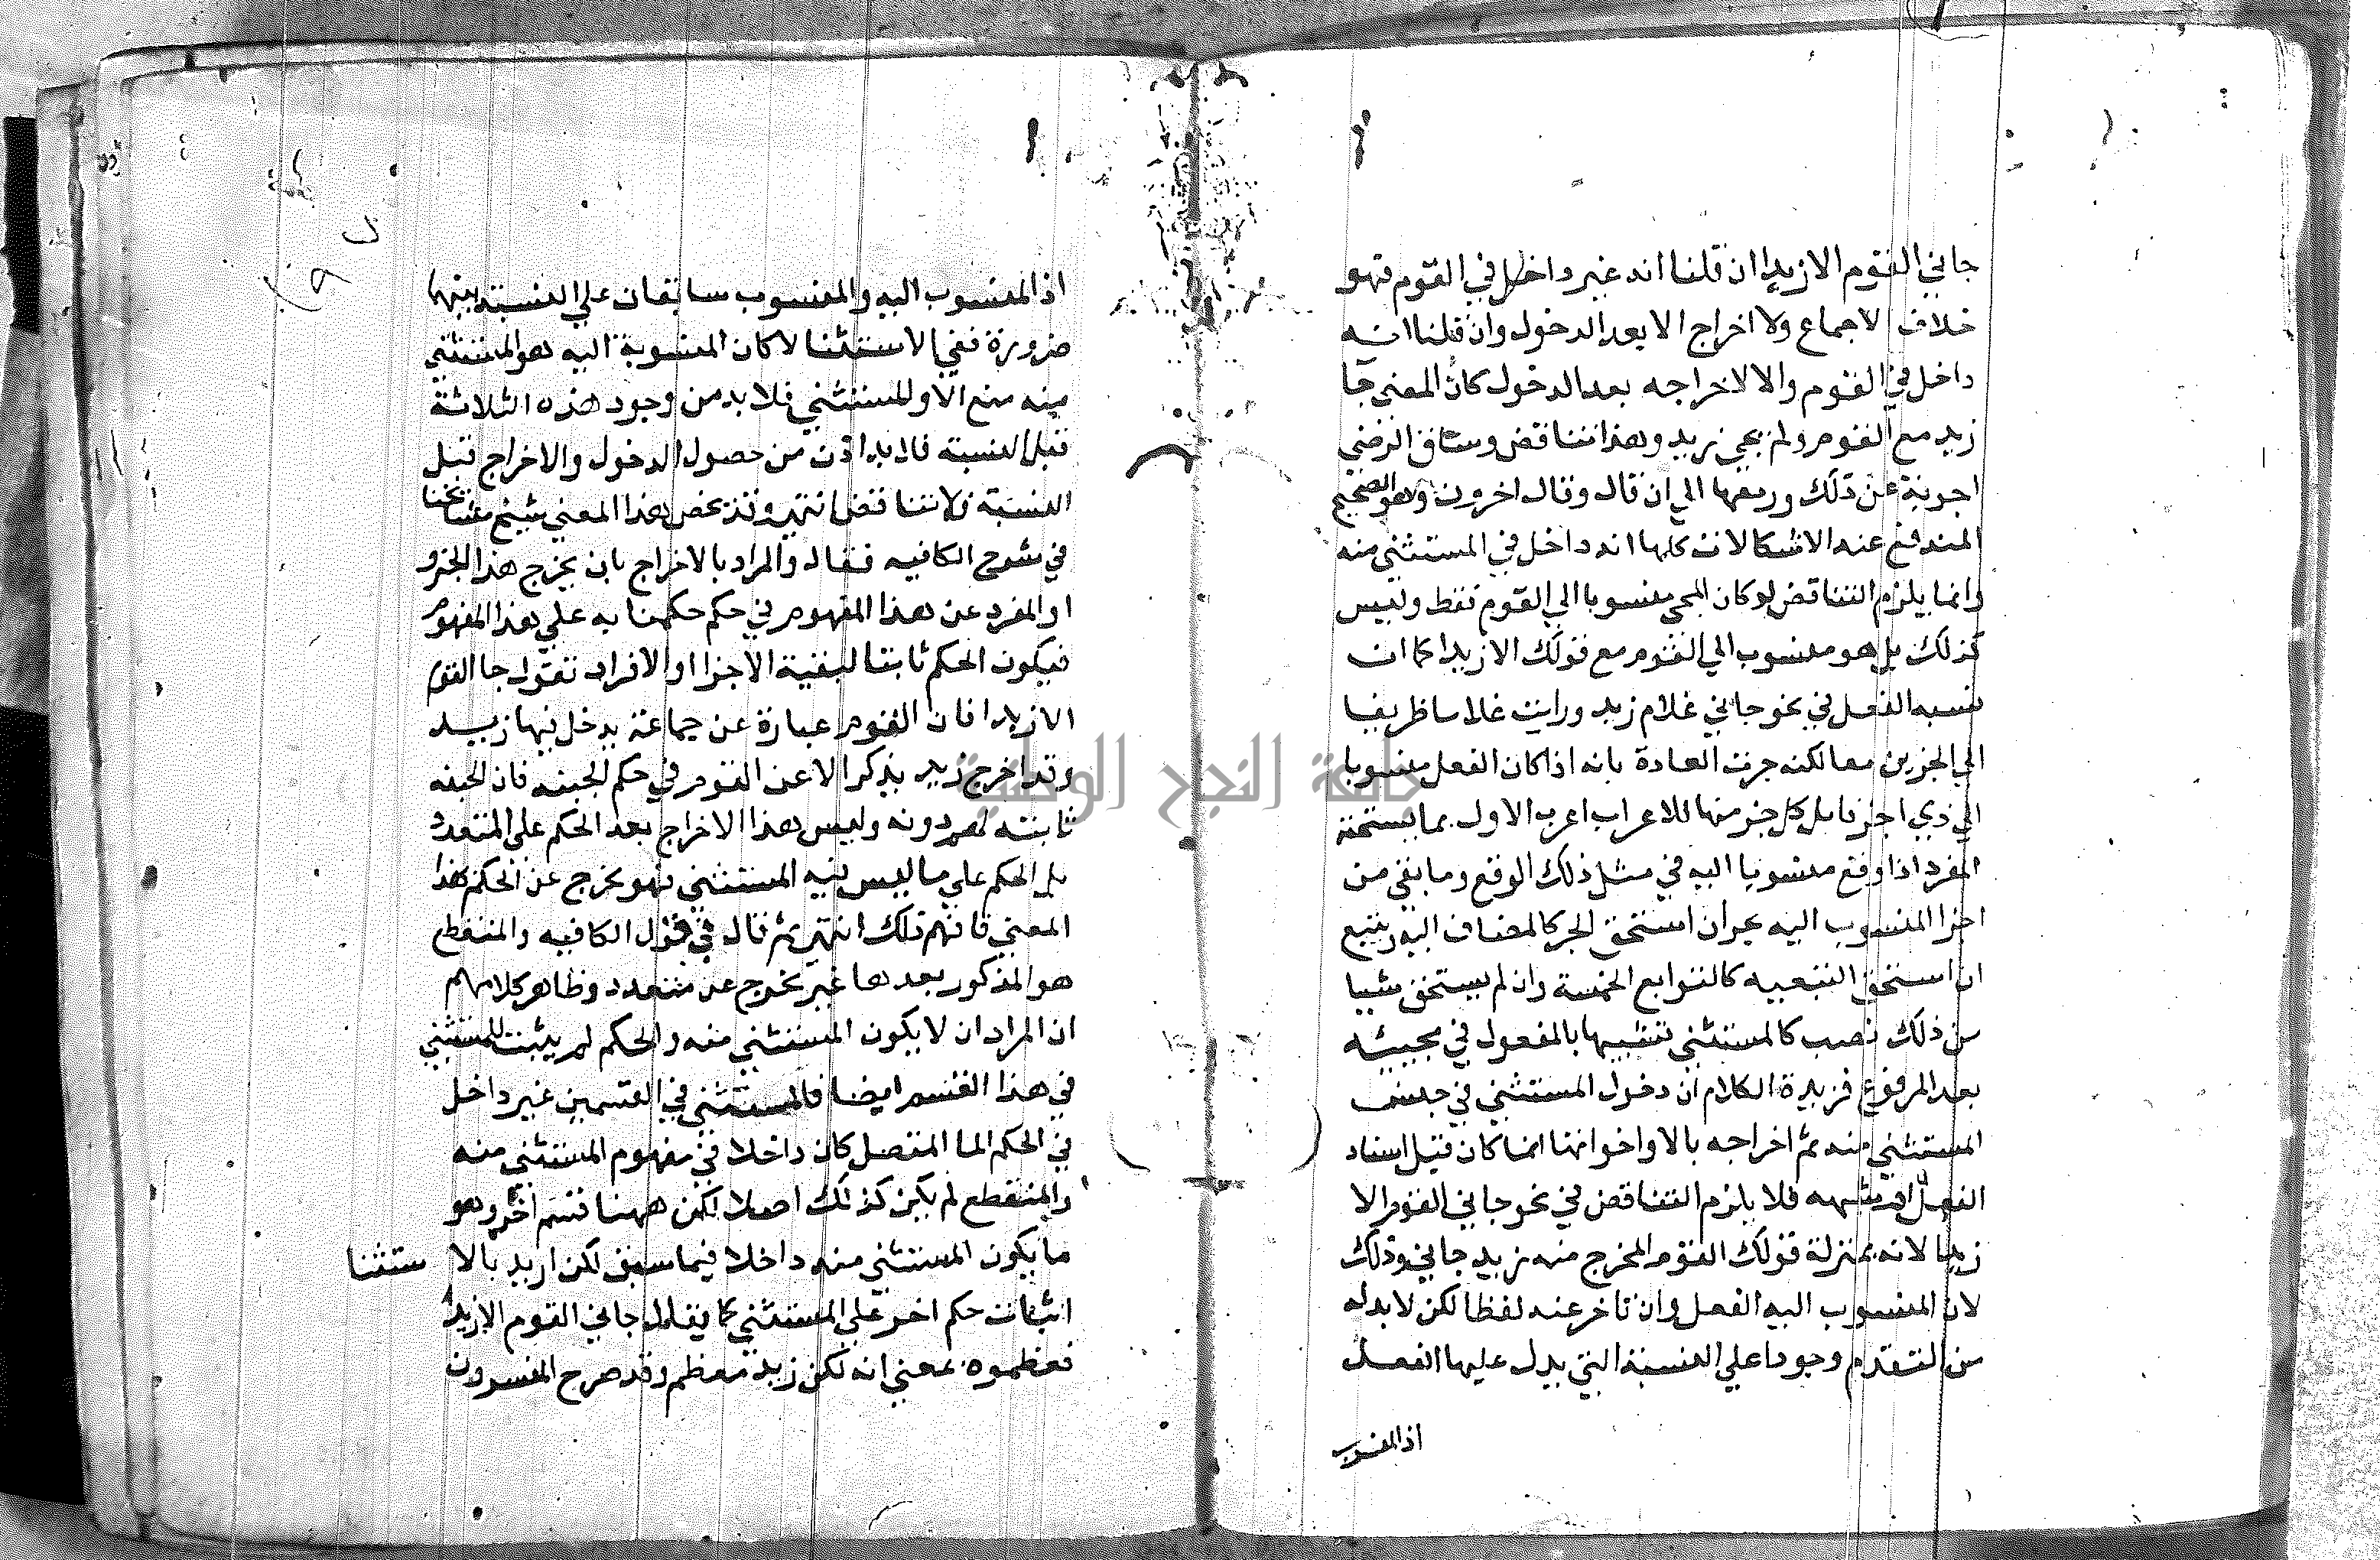 جاني القوم الا زيدا ان قلنا انه غير داخل في القوم فهو
خلاف الاجماع ولا اخراج الا بعد الدخول وان قلنا انه
داخل في القوم والا لاخراجه بعد الدخول كان المعني جا
زيد مع القوم ولم يجي زيد وهذا تناقض وساق الرضي
اجوبة عن ذلك وردها الي ان قال وقال اخرون وهو الصحيح
المندفع عنه الاشكالات كلها انه داخل في المستثني منه
وانما يلزم التناقض لو كان المجي منسوبا الي القوم فقط وليس
كذلك بل هو منسوب الي القوم مع قولك الا زيدا كما ان
نسبه الفعل في نحو جاني غلام زيد ورايت غلاما ظريفا
الي الجزين معا لكنه جرت العادة بانه اذا كان الفعل منسوبا
الي ذي اجزا قابل كل جز منها للاعراب اعرب الاول بما يستحقه
المفرد اذا وقع منسوبا اليه في مثل ذلك الوقع وما بقي من
اجزا المنسوب اليه يجر ان استحق الجر كالمضاف اليه ويتبع
ان استحق التبعيه كالتوابع الخمسة وان لم يستحق شيا
من ذلك نصب كالمستثني تشبيها بالمفعول في مجيئه
بعد المرفوع فزبدة الكلام ان دخول المستثني في جنس
المستثني منه ثم اخراجه بالا واخواتها انما كان قبل اسناد
الفعل او شبهه فلا يلزم التناقض في نحو جاني القوم الا
زيدا لانه بمنزلة قولك القوم المخرج منه زيد جاني وذلك
لان المنسوب اليه الفعل وان تاخر عنه لفظا لكن لابد له
من التقدم وجودا علي النسبة التي يدل عليها الفعل
اذ المنسوب
اذ المنسوب اليه والمنسوب سابقان علي النسبة بينهما
ضرورة ففي الاستثنا لا كان المنسوبة اليه هو المستثني
منه مع الا والمستثني فلا بد من وجود هذه الثلاثة
قبل النسبة فلا بد اذن من حصول الدخول والاخراج قبل
النسبة ولا تناقض انتهي وقد لخص هذا المعني شيخ مشايخنا
في شرح الكافيه فقال والمراد بالاخراج بان يخرج هذا الجزو
او المفرد عن هذا المفهوم في حكم حكمنا به علي هذا المفهوم
فيكون الحكم ثابتا لبقية الاجزا او الافراد تقول جا القوم
الا زيدا فان القوم عبارة عن جماعة يدخل فيها زيد
وقد اخرج زيد بذكر الا عن القوم في حكم المجيئه فان المجيئه
ثابته لهم دونه وليس هذا الاخراج بعد الحكم علي المتعدد
بل الحكم علي ما ليس فيه المستثني فهو يخرج عن الحكم هذا
المعني فافهم ذلك انتهي ثم قال في قول الكافيه والمنقطع
هو المذكور بعدها غير مخرج عن متعدد وظاهر كلامهم
ان المراد ان لا يكون المستثني منه والحكم لم يثبت للمستثني
في هذا القسم ايضا فالمستثني في القسمين غير داخل
في الحكم الما المتصل كان داخلا في مفهوم المستثني منه
والمنقطع لم يكن كذلك اصلا لكن ههنا قسم اخر وهو
ما يكون المستثني منه داخلا فيما سبق لكن اريد بالا ستثنا
اثبات حكم اخر علي المستثني كما يقال جاني القوم الا زيد
فعظموه بمعني انه لكن زيد معظم وقد صرح المفسرون
جامعة النجاح الوطنية